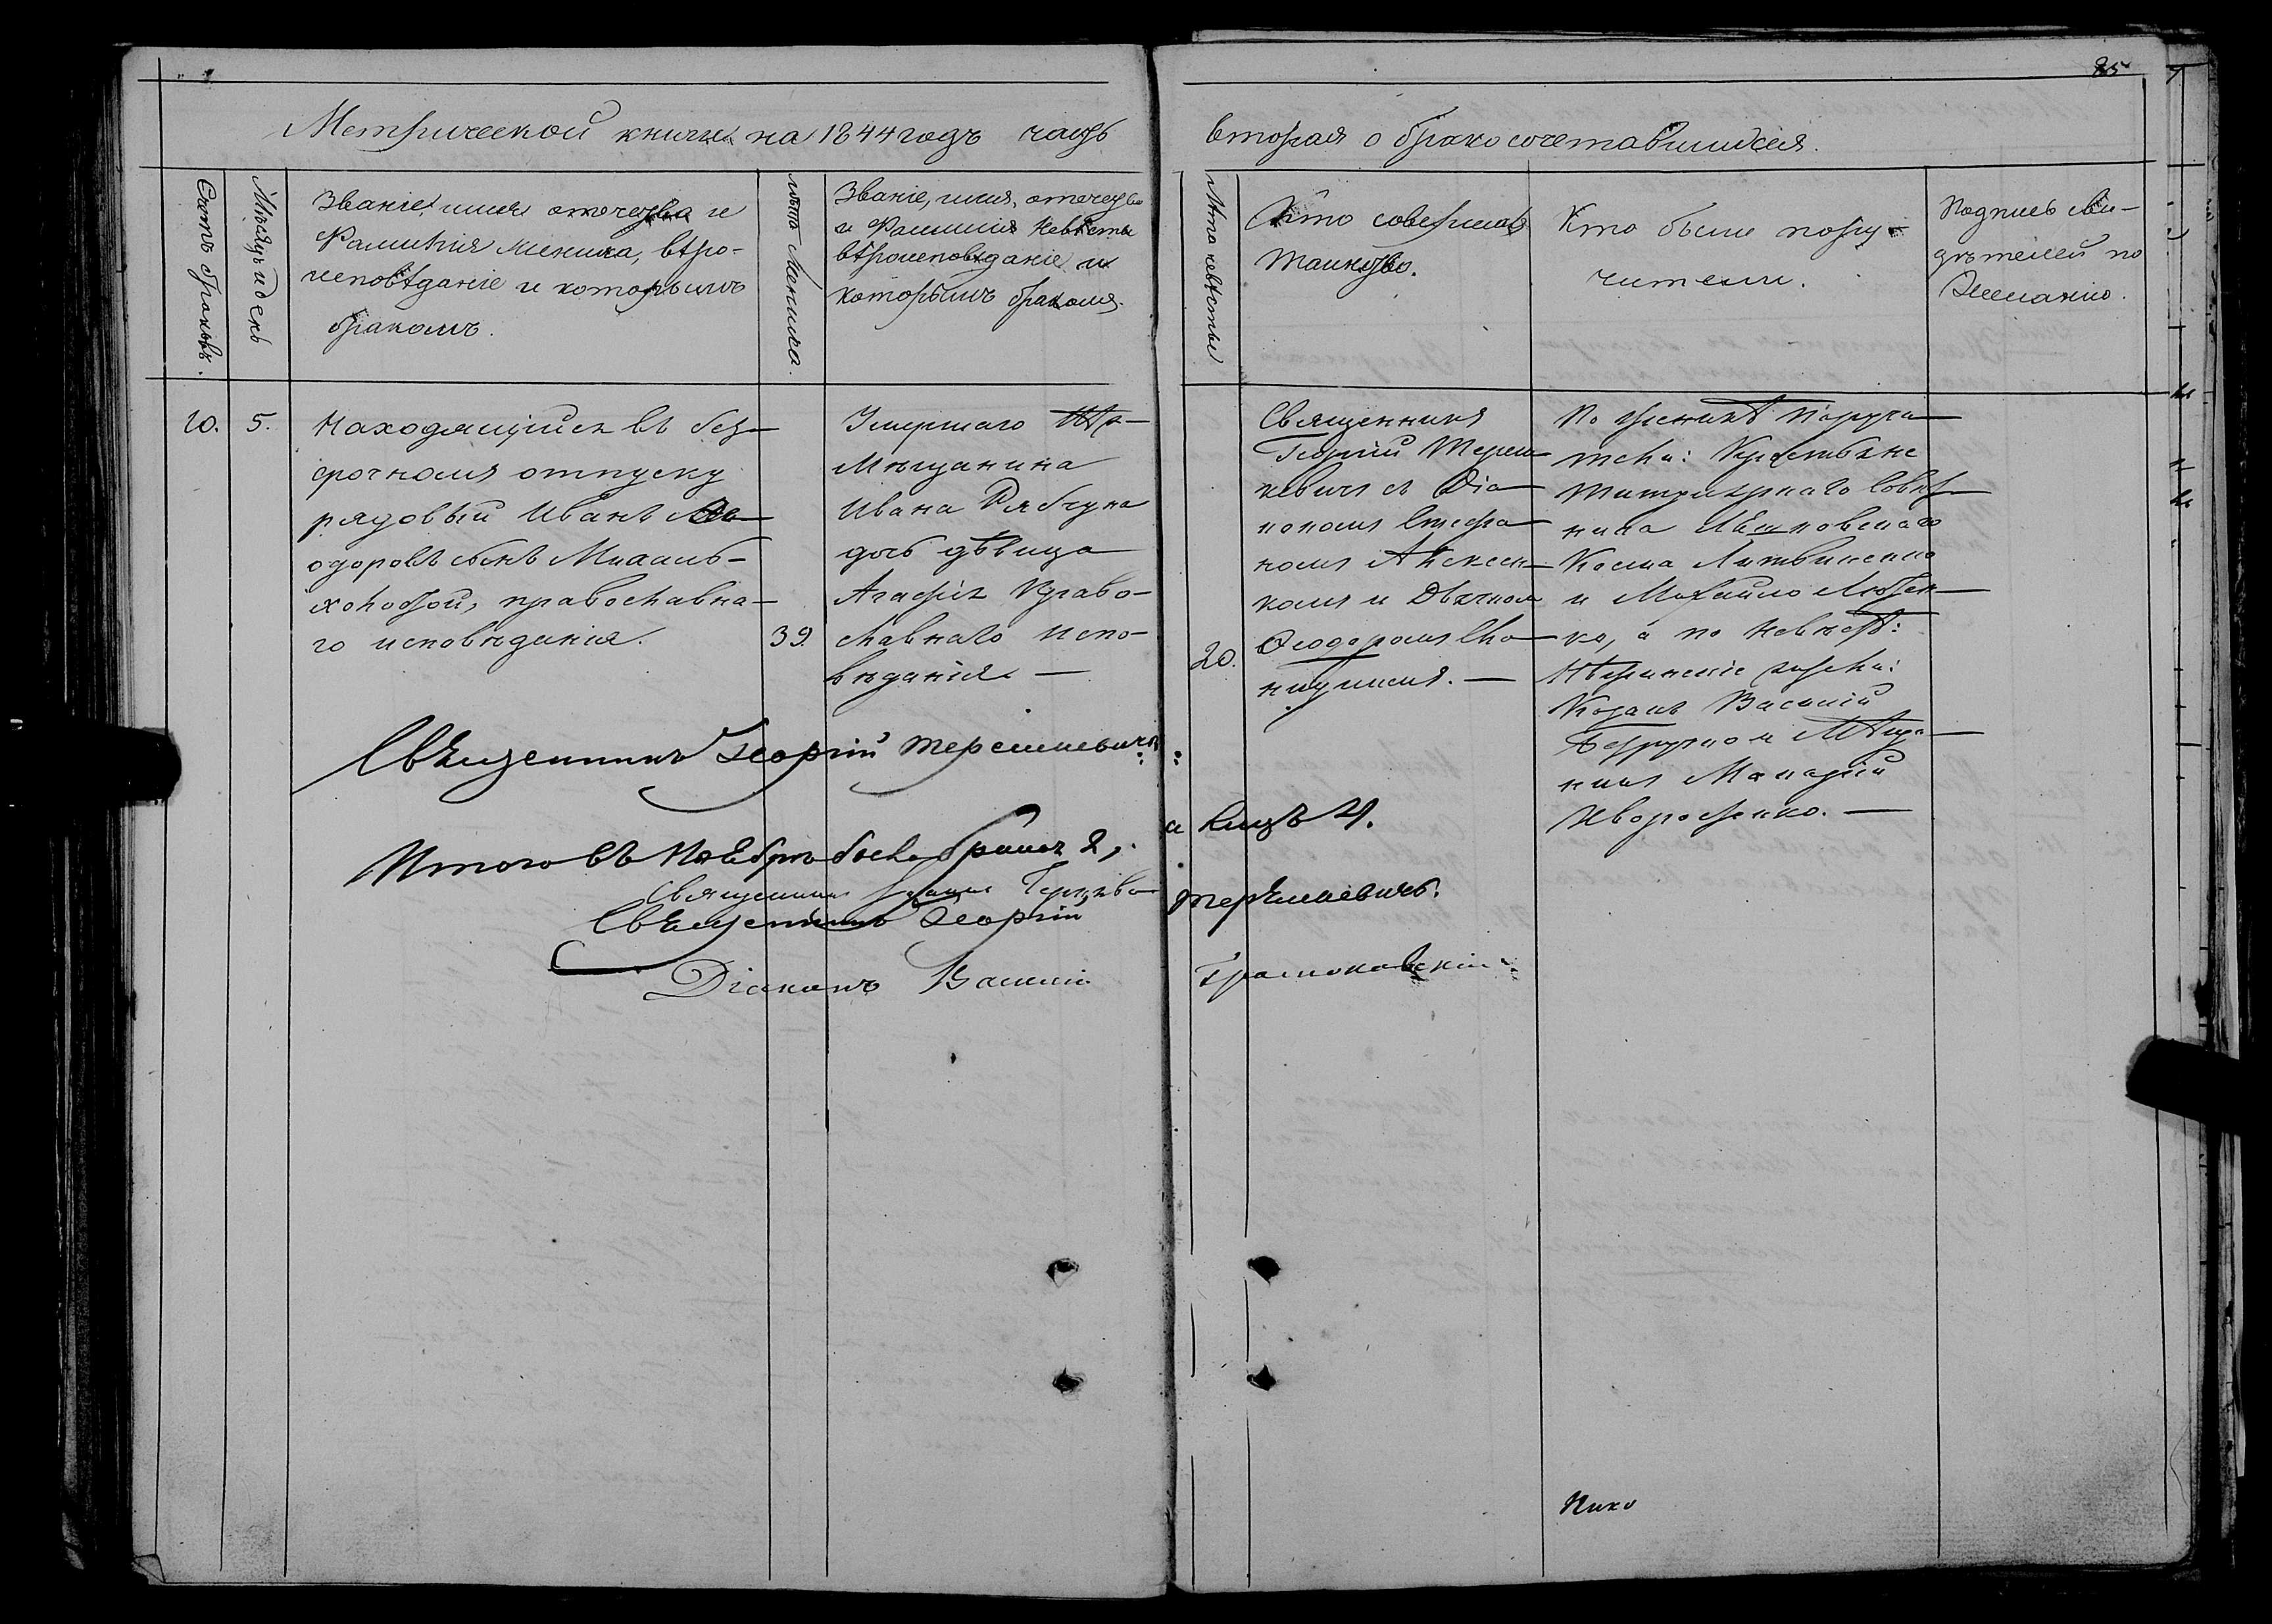 85
Метрической книги на 1844 годъ часть вторая о бракосочетавшихся.
Счетъ браковъ.
Мѣсяцъ и день
Званіе, имя отчество и
Фамилія жениха, вѣро-
исповѣданіе и которымъ
бракомъ.
лѣта жениха.
Званіе, имя, отчество
и Фамилія невѣсты
вѣроисповѣданіе и
которымъ бракомъ.
Лѣта невѣсты
Кто совершалъ
таинство.
Кто были поручи-
тели.
Подпись сви-
дѣтелей по
желанію.
10.
5.
Находящійся въ без-
срочномъ отпуску
рядовый Иванъ
одоровъ сынъ
православна-
го исповѣданія.
39.
Умершаго
Мѣщанина
Ивана Рябчуна
дочь дѣвица
Агафія Право-
славнаго испо-
вѣданія —
20.
Священникъ
Георгій Тереш-
кевичъ съ Діа-
кономъ Стефа-
номъ
комъ и Дьячкомъ
Ѳеодоромъ
По женихѣ поручи-
тели: Крестьяне
Титулярнаго Совѣт-
ника
Косма Литвиненко
и Михайло
ко, а по невѣстѣ:
Козакъ Василій
и Мѣща-
нинъ
Священникъ Георгій Терешкевичъ
Итого въ Ноябрѣ было брака 2, а лицъ 4.
Священникъ
Священникъ Георгій Терешкевичъ.
Діаконъ Василій